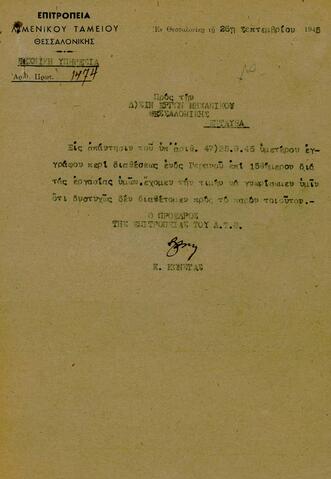 ΕΠΙΤΡΟΠΕΙΑ
ΛΙΜΕΝΙΚΟΥ ΤΑΜΕΙΟΥ
ΘΕΣΣΑΛΟΝΙΚΗΣ
ΤΕΧΝΙΚΗ ΥΠΗΡΕΣΙΑ
Ἀρ. Πρωτ. 1474
Ἐν Θεσσαλονίκῃ τῇ 26ῃ Σεπτεμβρίου 1945
Πρὸς τὴν
Δ)ΣΙΝ ΕΡΓΩΝ ΜΗΧΑΝΙΚΟΥ
ΘΕΣΣΑΛΟΝΙΚΗΣ
ΕΝΤΑΥΘΑ
Εἰς ἀπάντησιν τοῦ ὑπ' ἀριθ. 47)25.9.45 ὑμετέρου ἐγ-
γράφου περὶ διαθέσεως ἑνὸς Γερανοῦ ἐπὶ 15θήμερον διὰ
τὰς ἐργασίας ὑμῶν, ἔχομεν τὴν τιμὴν νὰ γνωρίσωμεν ὑμῖν
ὅτι δυστυχῶς δὲν διαθέτομεν πρὸς τὸ παρὸν τοιοῦτον.-
Ο ΠΡΟΕΔΡΟΣ
ΤΗΣ ΕΠΙΤΡΟΠΕΙΑΣ ΤΟΥ Λ.Τ.Θ.